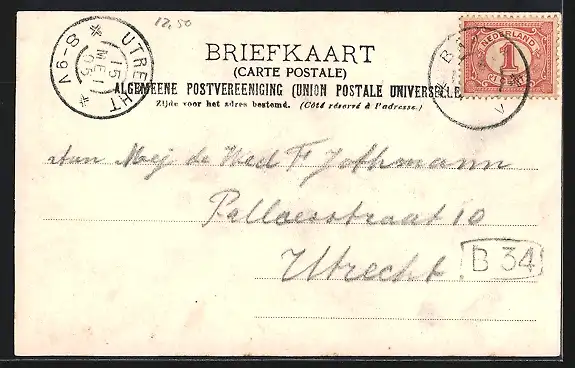 12,50
UTRECHT
8-9V
15
MEI
05
NEDERLAND
1
CENT
BRIEFKAART
(CARTE POSTALE)
ALGEMEENE POSTVEREENIGING (UNION POSTALE UNIVERSELLE)
Zijde voor het adres bestemd. (Côté réservé à l'adresse.)
Aan Mej de Wed F Jothmann
straat 10
Utrecht.
B 34